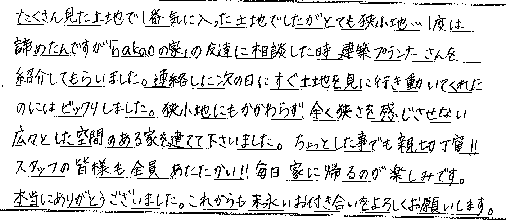 たくさん見た土地で1番気に入った土地でしたがとても狭小地…1度は
諦めたんですが「nakaoの家」の友達に相談した時 建築プランナーさんを
紹介してもらいました。連絡した次の日にすぐ土地を見に行き動いてくれた
のにはビックリしました。狭小地にもかかわらず 全く狭さを感じさせない
広々とした空間のある家を建てて下さいました。ちょっとした事でも親切丁寧!!
スタッフの皆様も全員 あたたかい!! 毎日 家に帰るのが楽しみです。
本当にありがとうございました。これからも末永いお付き合いをよろしくお願いします。